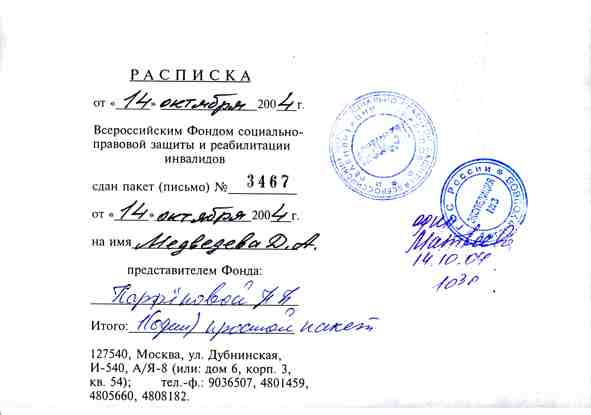 РАСПИСКА
от «14» октября 2004 г.
Всероссийским Фондом социально-
правовой защиты и реабилитации
инвалидов
сдан пакет (письмо) № 3467
от «14» октября 2004 г.
на имя Медведева Д. А.
представителем Фонда:
Итого: 1(один) простой пакет
127540, Москва, ул. Дубнинская,
И-540, А/Я-8 (или: дом 6, корп. 3,
кв. 54); тел.-ф.: 9036507, 4801459,
4805660, 4808182.
ЭКСПЕДИЦИЯ
14.10.04